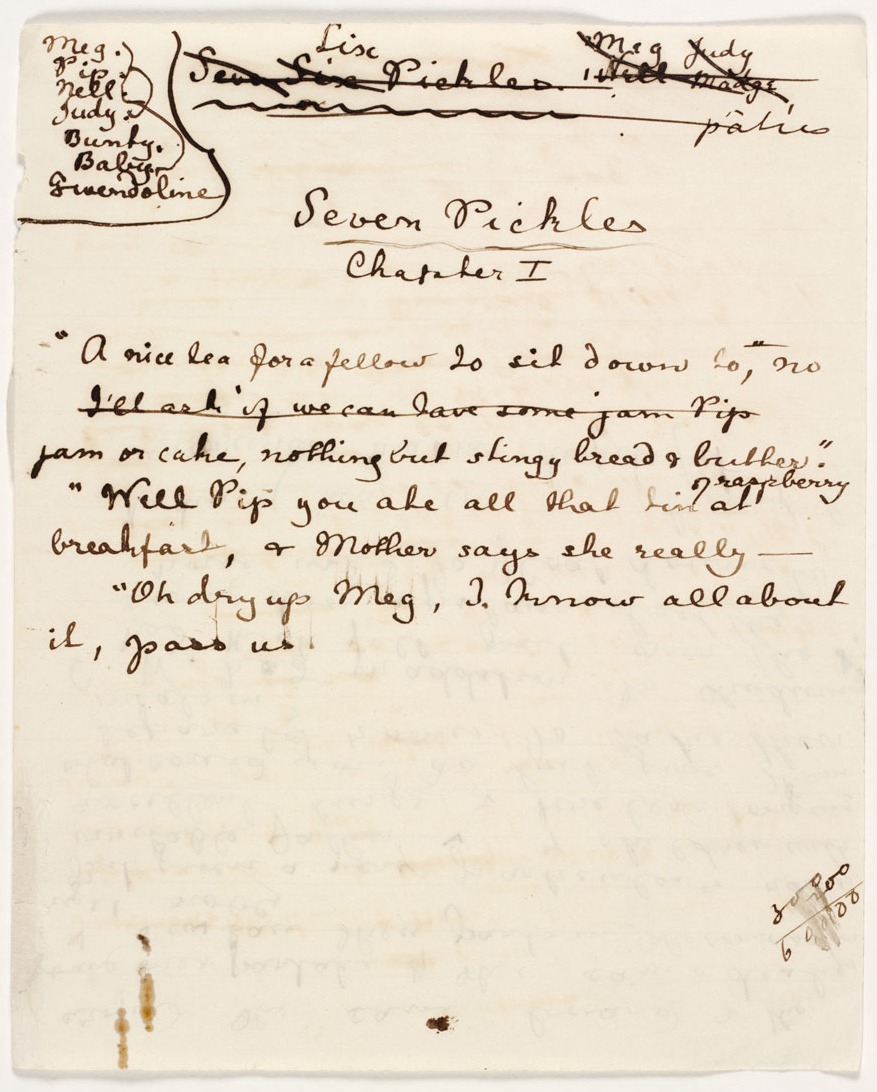 Meg.
Pip.
Nell.
Judy.
Bunty.
Baby.
Gwendoline
Six
Seven Six Pickles.
Meg Judy
Nell Madge
Seven Pickles
Chapter I
"A nice tea for a fellow to sit down to," "no
I'll ask if we can have some jam Pip
jam or cake, nothing but stingy bread & butter."
"Well Pip you ate all that tin of raspberry at
breakfast, & Mother says she really —
"Oh dry up Meg, I know all about
it, pass us